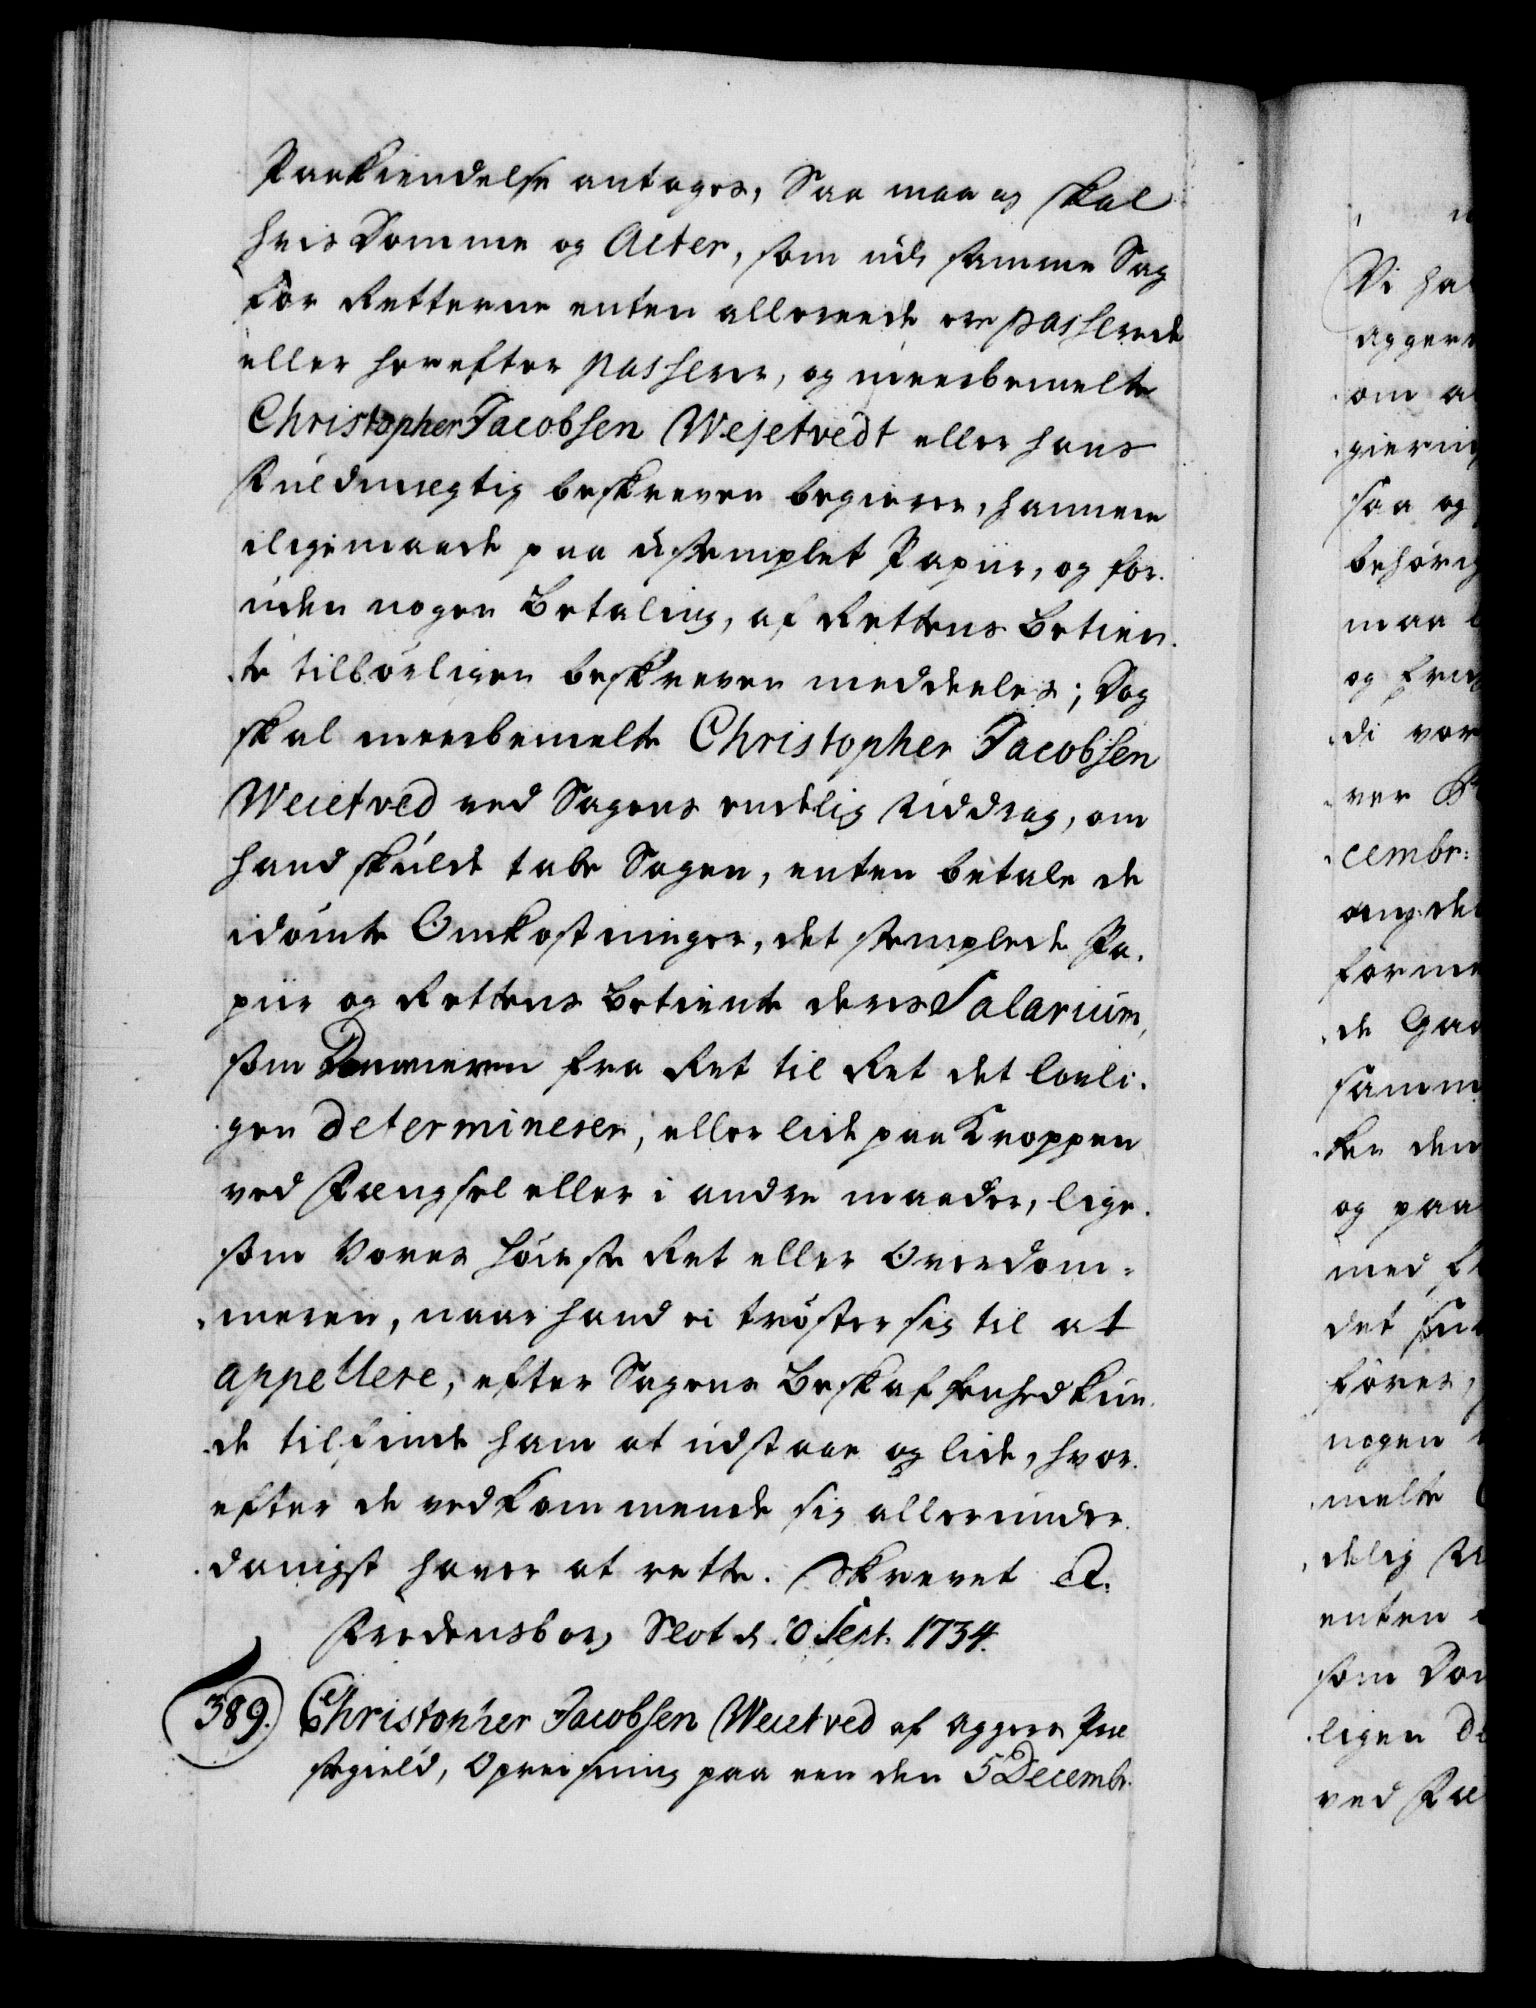 Paakiendelse antages, Saa maa og skal
hvis Domme og Acter, som udi samme Sag
for Retterne enten allereede ere passerede
eller herefter passerer, og meerbemelte
Christopher Jacobsen Wejetvedt eller hans
Fuldmegtig beskreven begierer, hannem
iligemaade paa ustemplet Papiir, og for-
uden nogen Betaling, af Rettens Betien-
te tilbørligen beskreven meddeeles; Dog
skal meerbemelte Christopher Jacobsen
Weietved ved Sagens endelig Uddrag, om
hand skulde tabe Sagen, enten betale de
idømte Omkostninger, det stemplede Pa-
piir og Rettens Betiente deres Salarium,
som Dommeren fra Ret til Ret det lovli-
gen determinerer, eller lide paa Kroppen
ved Fængsel eller i andre maader, lige-
som Vores Høieste Ret eller Overdom-
meren, naar hand ei trøster sig til at
appellere, efter Sagens Beskaffenhed kun-
de tilfinde ham at udstaae og lide, hvor-
efter de vedkommende sig allerunder-
danigst haver at rette. Skrevet &.
Fredensborg Slot d. 10 Sept. 1734.
389. Christopher Jacobsen Weietved af Aggers Præ
stegield, Opreisning paa een den 5 Decembr.
Vi ha
Agger
om a
giering
saa og
behørig
maa
og frie
di vor
ver
cembr:
ang: de
forme
de Gaa
samm
ke den
og paa
med
det
føres,
nogen
melte
delig
enten
som Dom
ligen de
ved Fæ